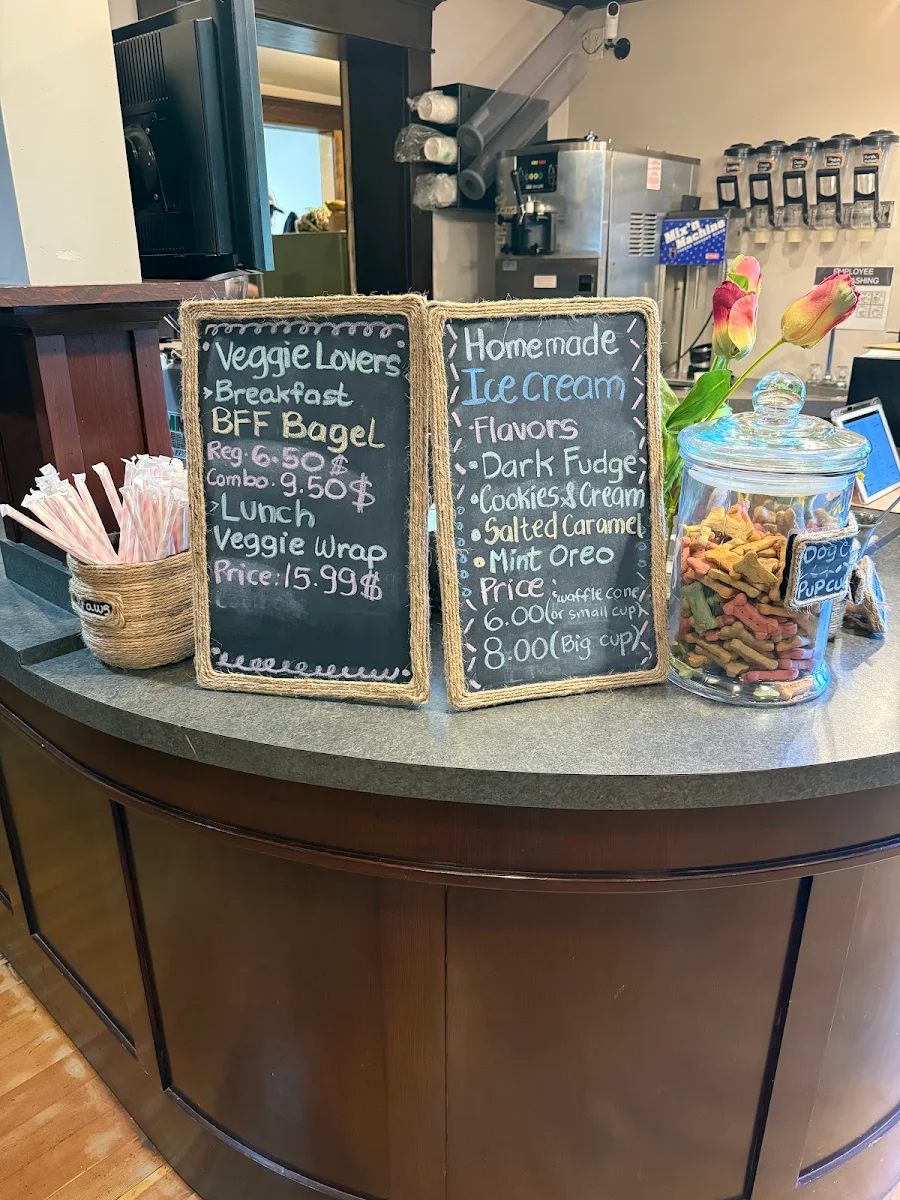 Veggie Lovers
>Breakfast
BFF Bagel
Reg. 6.50$
Combo. 9.50$
>Lunch
Veggie Wrap
Price: 15.99$
Homemade
Ice cream
Flavors
Dark Fudge
Cookies & Cream
Salted Caramel
Mint Oreo
Price: waffle cone
6.00 (or small cup)
8.00 (Big cup)
Mix'n
Machine
EMPLOYEE